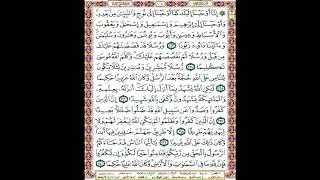 إِنَّا أَوْحَيْنَا إِلَيْكَ كَمَا أَوْحَيْنَا إِلَىٰ نُوحٍ وَالنَّبِيِّينَ مِن بَعْدِهِ
وَأَوْحَيْنَا إِلَىٰ إِبْرَاهِيمَ وَإِسْمَاعِيلَ وَإِسْحَاقَ وَيَعْقُوبَ
وَالْأَسْبَاطِ وَعِيسَىٰ وَأَيُّوبَ وَيُونُسَ وَهَارُونَ وَسُلَيْمَانَ
وَآتَيْنَا دَاوُودَ زَبُورًا ١٦٣ وَرُسُلًا قَدْ قَصَصْنَاهُمْ عَلَيْكَ
مِن قَبْلُ وَرُسُلًا لَّمْ نَقْصُصْهُمْ عَلَيْكَ وَكَلَّمَ اللَّهُ مُوسَىٰ
تَكْلِيمًا ١٦٤ رُّسُلًا مُّبَشِّرِينَ وَمُنذِرِينَ لِئَلَّا يَكُونَ
لِلنَّاسِ عَلَى اللَّهِ حُجَّةٌ بَعْدَ الرُّسُلِ وَكَانَ اللَّهُ عَزِيزًا حَكِيمًا ١٦٥
لَّٰكِنِ اللَّهُ يَشْهَدُ بِمَا أَنزَلَ إِلَيْكَ أَنزَلَهُ بِعِلْمِهِ
وَالْمَلَائِكَةُ يَشْهَدُونَ وَكَفَىٰ بِاللَّهِ شَهِيدًا ١٦٦ إِنَّ
الَّذِينَ كَفَرُوا وَصَدُّوا عَن سَبِيلِ اللَّهِ قَدْ ضَلُّوا ضَلَالًا بَعِيدًا ١٦٧
إِنَّ الَّذِينَ كَفَرُوا وَظَلَمُوا لَمْ يَكُنِ اللَّهُ لِيَغْفِرَ لَهُمْ وَلَا
لِيَهْدِيَهُمْ طَرِيقًا ١٦٨ إِلَّا طَرِيقَ جَهَنَّمَ خَالِدِينَ فِيهَا أَبَدًا
وَكَانَ ذَٰلِكَ عَلَى اللَّهِ يَسِيرًا ١٦٩ يَا أَيُّهَا النَّاسُ قَدْ جَاءَكُمُ
الرَّسُولُ بِالْحَقِّ مِن رَّبِّكُمْ فَآمِنُوا خَيْرًا لَّكُمْ وَإِن تَكْفُرُوا
فَإِنَّ لِلَّهِ مَا فِي السَّمَاوَاتِ وَالْأَرْضِ وَكَانَ اللَّهُ عَلِيمًا حَكِيمًا ١٧٠